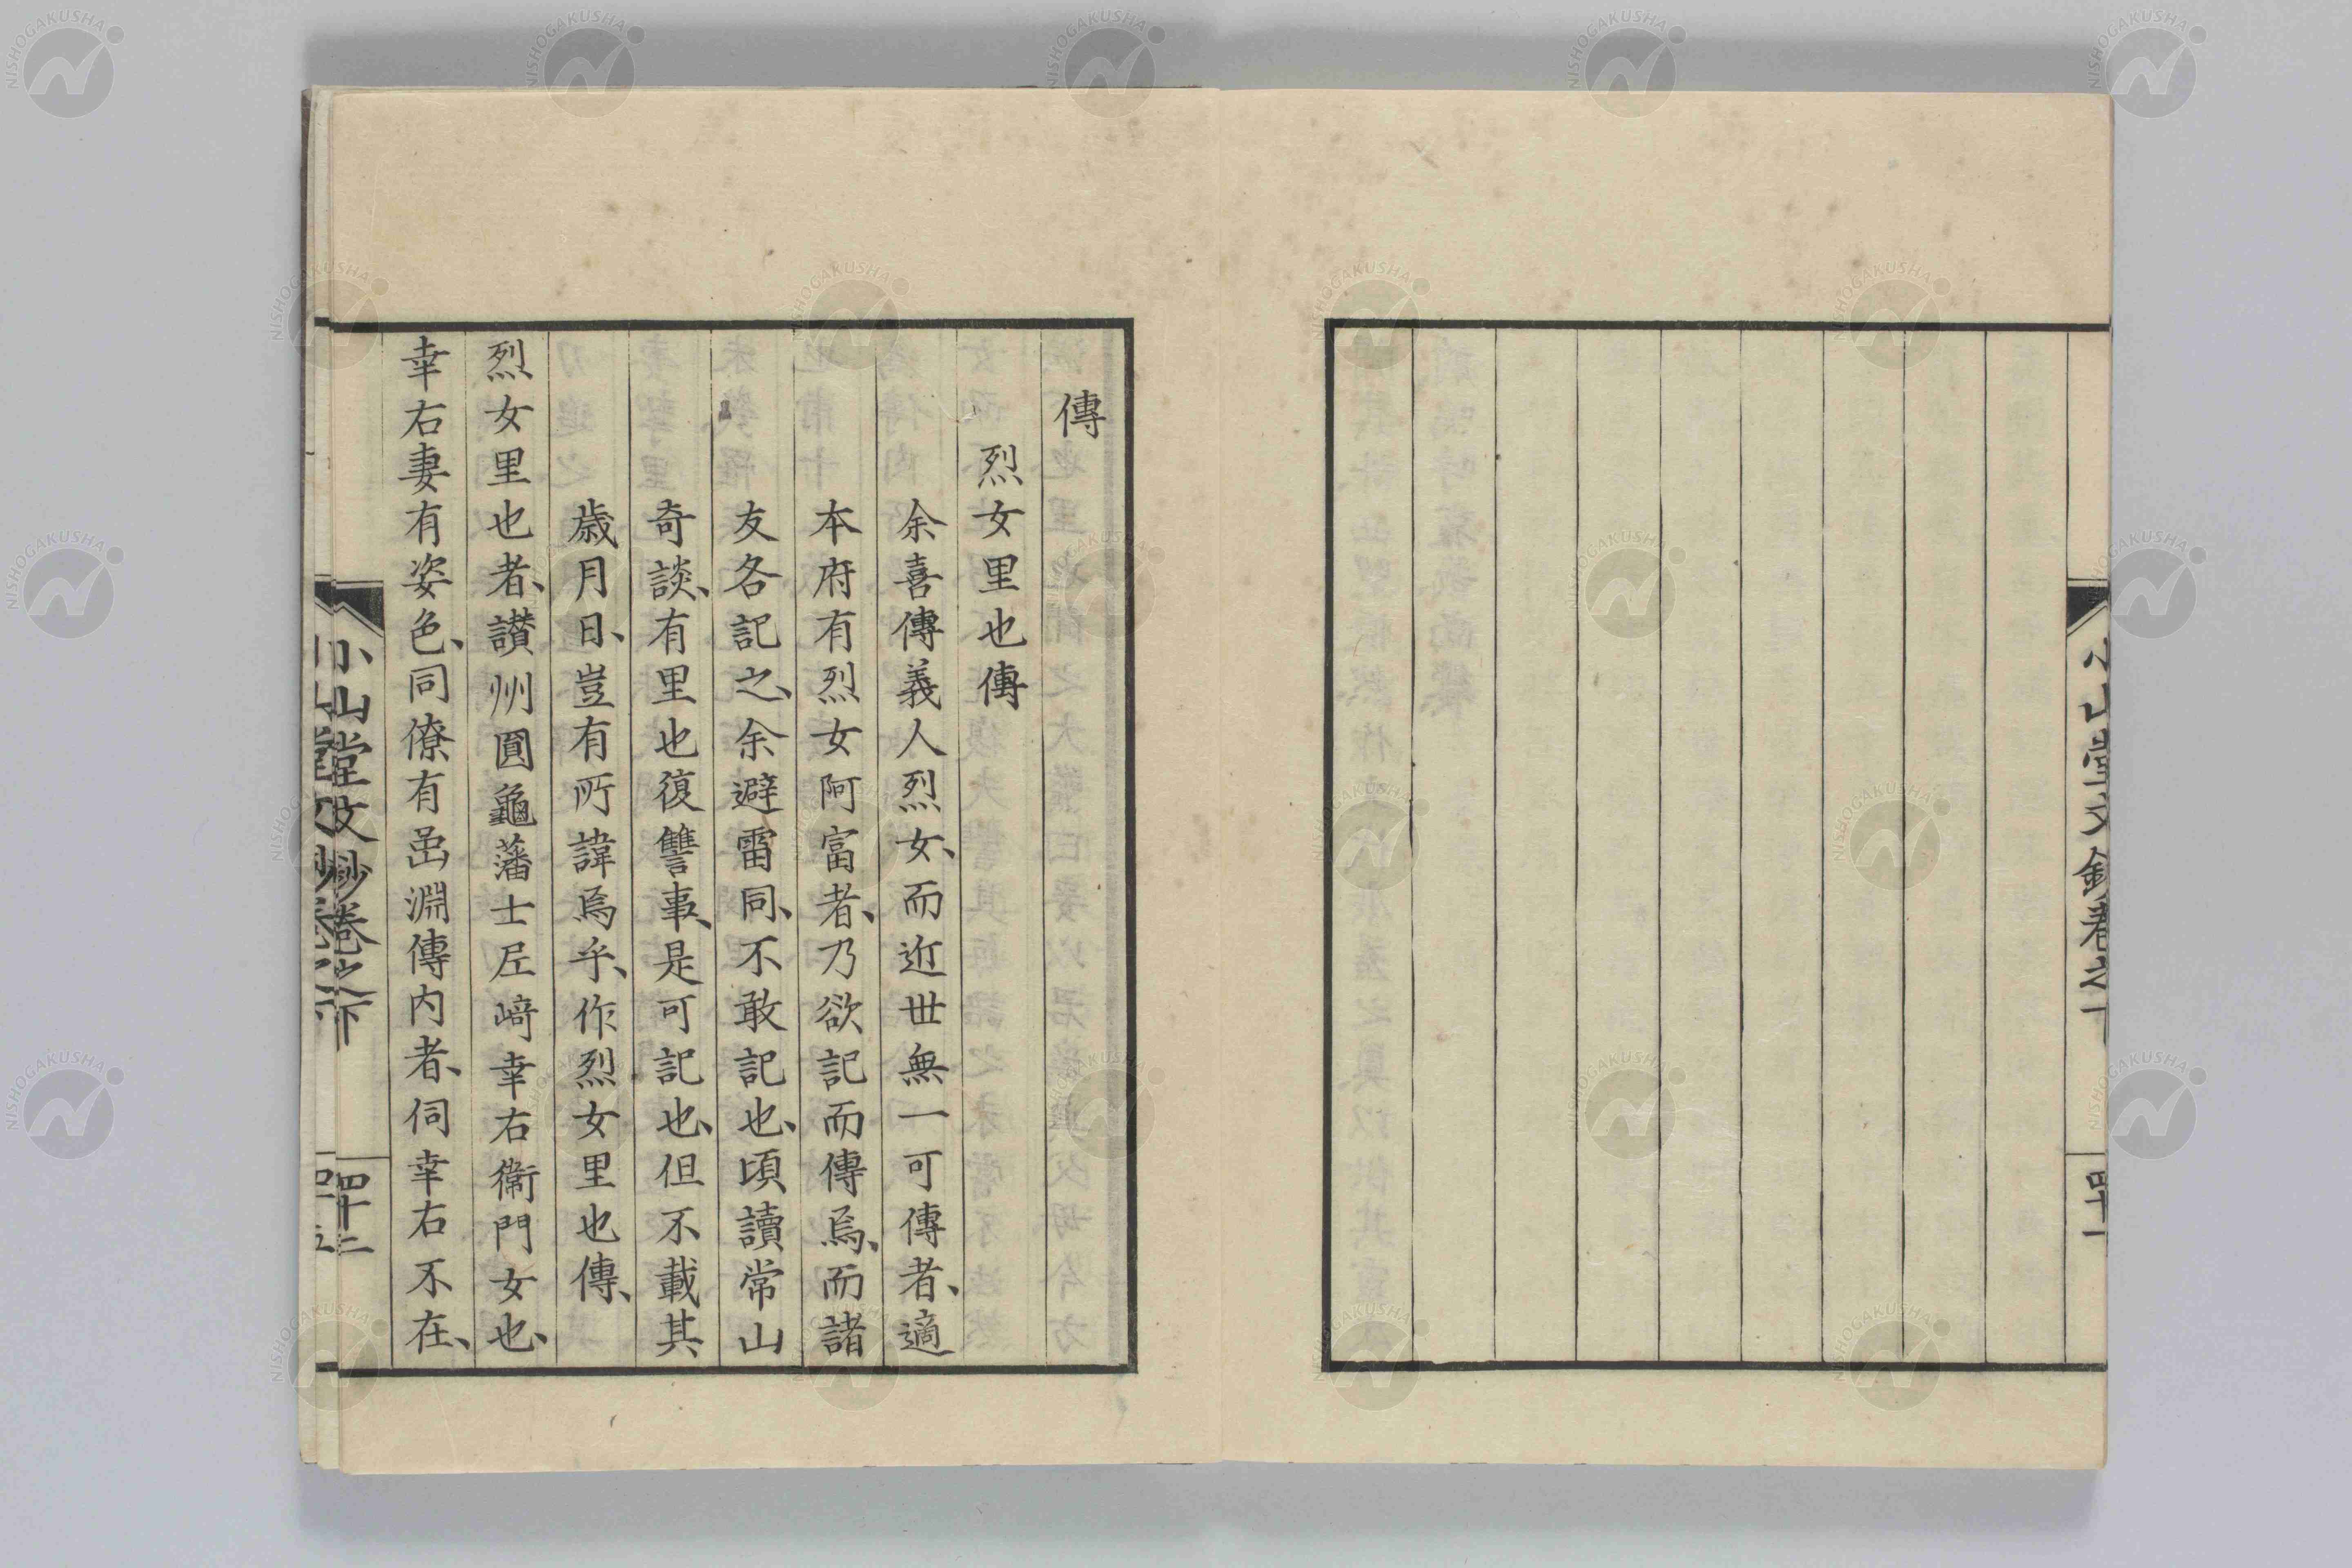 小山堂文鈔卷之下
四十一
傳
烈女里也傳
余喜傳義人烈女、而近世無一可傳者、適
本府有烈女阿富者、乃欲記而傳焉、而諸
友各記之、余避雷同、不敢記也、頃讀常山
奇談、有里也復讐事、是可記也、但不載其
歳月日、豈有所諱焉乎、作烈女里也傳、
烈女里也者、讃州圓龜藩士尼﨑幸右衞門女也、
幸右妻有姿色、同僚有嵒淵傳内者、伺幸右不在、
小山堂文鈔卷之下
四十二
NISHOGAKUSHA